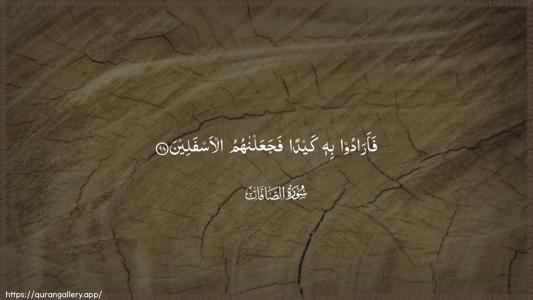 فَأَرَادُوْا بِهٖ كَيْدًا فَجَعَلْنٰهُمُ الْاَسْفَلِيْنَ۝٩٨
سُوْرَةُ الصَّافَّات
https://qurangallery.app/